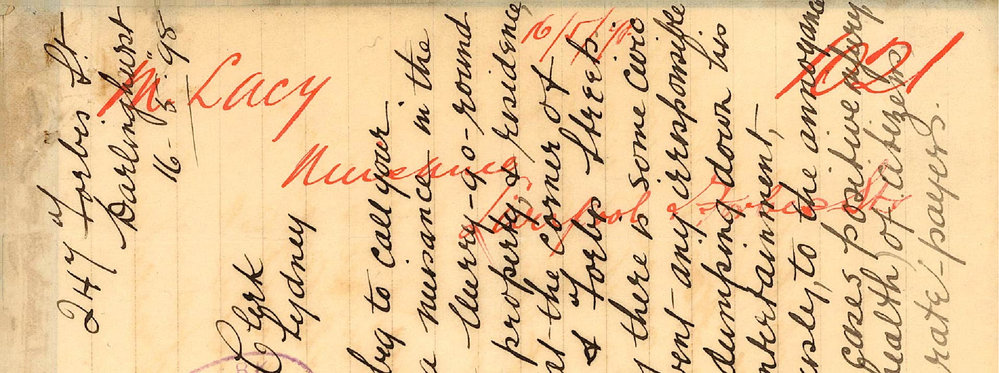 247 Forbes St
Darlinghurst
16-5-98
Clerk
Sydney
beg to call your
a nuisance in the
Merry-go-round
property & residence
at the corner of
& Forbes Streets.
there is some civic
vent any irresponsible
dumping down his
ntertainment,
usly, to the annoyance
cases positive injury
health) of citizens
rate-payers.
M. Lacy
16/5/98
1021
Nuisance
Liverpool & Forbes St